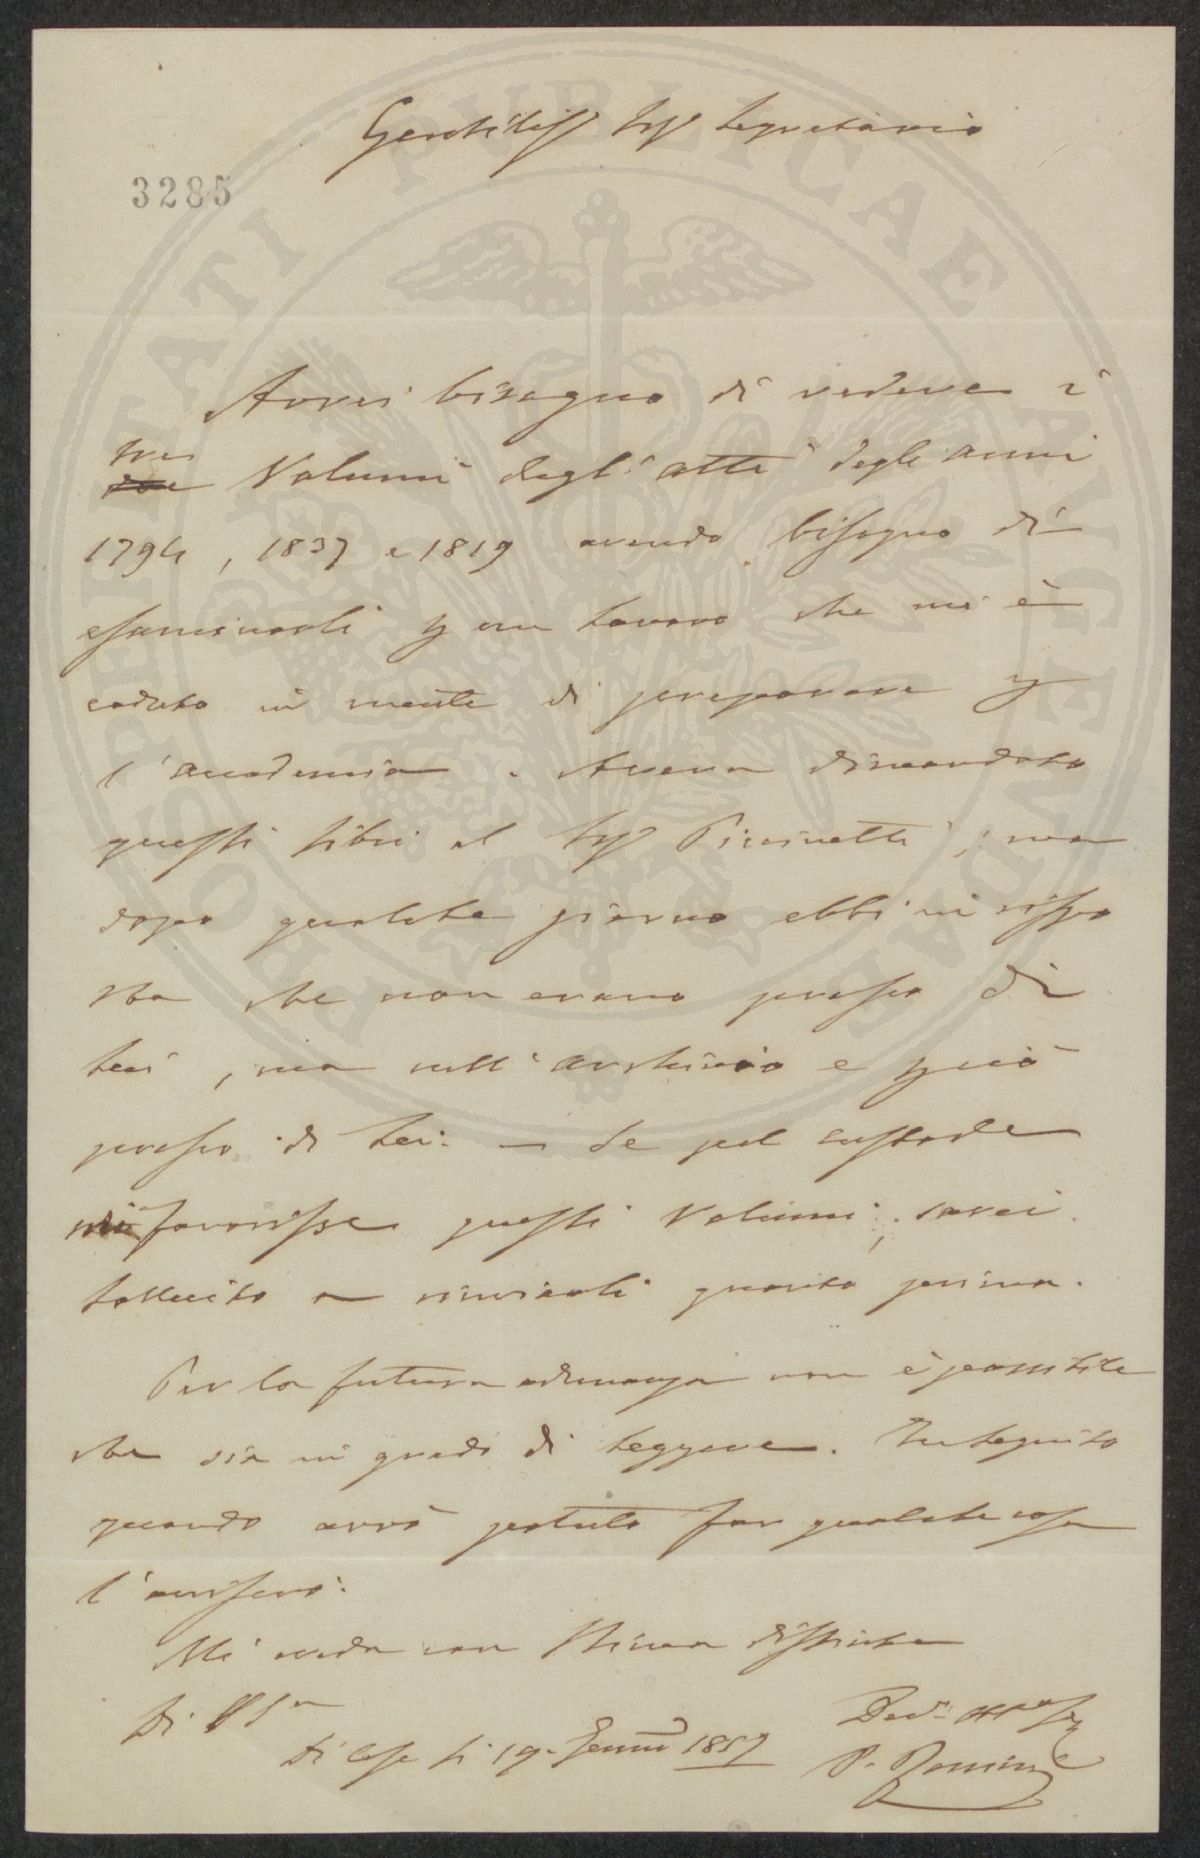 Gentiliss. Sigr Segretario
3285
PROSPERITATI PUBLICAE AUGENDAE
Avrei bisogno di vedere i
tre
due Volumi degl' atti degli anni
1794, 1837 e 1819 avendo bisogno di
esaminarli p un lavoro che mi è
caduto in mente di preparare p
l'accademia. Aveva dimandato
questi libri al Sigr ; ma
dopo qualche giorno ebbi in rispo
sta che non erano presso di
Lei, ma nell'archivio e pciò
presso di Lei. — Se pel custode
mi favorisse questi Volumi, sarei
sollecito a rinviarli quanto prima.
Per la futura adunanza non è possibile
che sia in grado di leggere. In seguito
quando avrò potuto far qualche cosa
l'aviserò.
Mi creda con Stima distinta
Di VSra
Di Casa li 19. Genn 1857
Dev.
P.